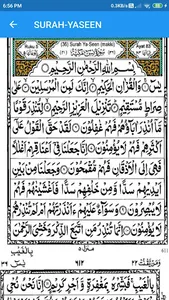 6:56 PM
0.24K/s
SURAH-YASEEN
(36) Surah Ya-Seen (makki)
بِسْمِ اللّٰهِ الرَّحْمٰنِ الرَّحِيْمِ
يٰسٓ ۝ وَالْقُرْاٰنِ الْحَكِيْمِ ۝ اِنَّكَ لَمِنَ الْمُرْسَلِيْنَ ۝ عَلٰى
صِرَاطٍ مُّسْتَقِيْمٍ ۝ تَنْزِيْلَ الْعَزِيْزِ الرَّحِيْمِ ۝ لِتُنْذِرَ قَوْمًا
مَّاۤ اُنْذِرَ اٰبَآؤُهُمْ فَهُمْ غٰفِلُوْنَ ۝ لَقَدْ حَقَّ الْقَوْلُ عَلٰۤى
اَكْثَرِهِمْ فَهُمْ لَا يُؤْمِنُوْنَ ۝ اِنَّا جَعَلْنَا فِيْۤ اَعْنَاقِهِمْ
اَغْلٰلًا فَهِيَ اِلَى الْاَذْقَانِ فَهُمْ مُّقْمَحُوْنَ ۝ وَجَعَلْنَا
مِنْۢ بَيْنِ اَيْدِيْهِمْ سَدًّا وَّمِنْ خَلْفِهِمْ سَدًّا فَاَغْشَيْنٰهُمْ فَهُمْ
لَا يُبْصِرُوْنَ ۝ وَسَوَآءٌ عَلَيْهِمْ ءَاَنْذَرْتَهُمْ اَمْ لَمْ تُنْذِرْهُمْ
لَا يُؤْمِنُوْنَ ۝ اِنَّمَا تُنْذِرُ مَنِ اتَّبَعَ الذِّكْرَ وَخَشِيَ الرَّحْمٰنَ
بِالْغَيْبِ
منزل ٥
يٰسٓ ٣٦
٩١٢
وَمَا لِيَ ٢٢
بِالْغَيْبِ فَبَشِّرْهُ بِمَغْفِرَةٍ وَّاَجْرٍ كَرِيْمٍ ۝ اِنَّا نَحْنُ نُحْيِ